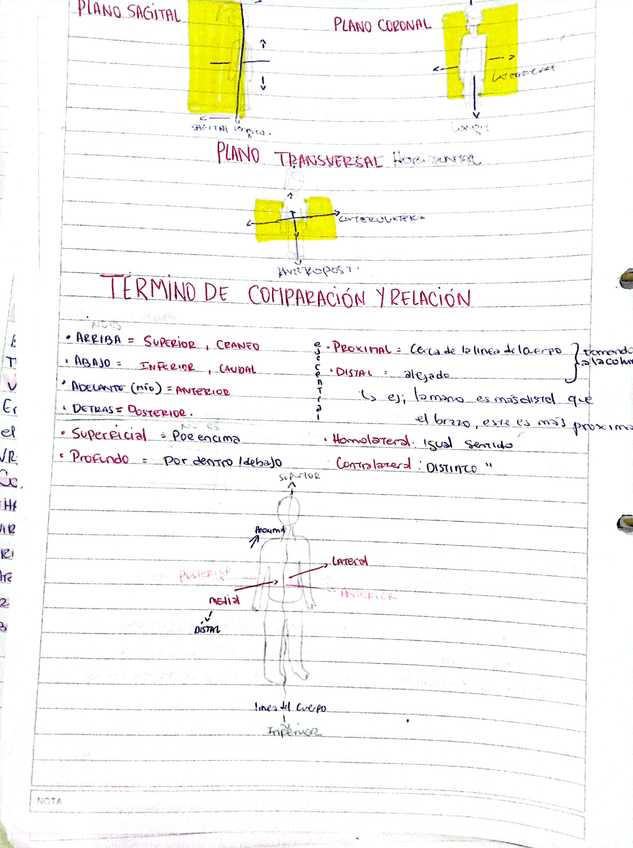 PLANO SAGITAL
PLANO CORONAL
PLANO TRANSVERSAL HORIZONTAL
ANTEROPOST.
TÉRMINO DE COMPARACIÓN Y RELACIÓN
• ARRIBA = SUPERIOR, CRANEO
• ABAJO = INFERIOR, CAUDAL
• ADELANTE (mío) = ANTERIOR
• DETRAS = POSTERIOR.
• Superficial = Por encima
• Profundo = Por dentro / debajo
• PROXIMAL = Cerca de la linea del cuerpo
• DISTAL = alejado
tomando
a la colum
↳ ej; la mano es más distal que
el brazo, este es más proxima
• Homolateral: Igual sentido
Contralateral: DISTINTO "
Superior
Proximal
LATERAL
POSTERIOR
ANTERIOR
Medial
DISTAL
linea del cuerpo
Inferior
NOTA